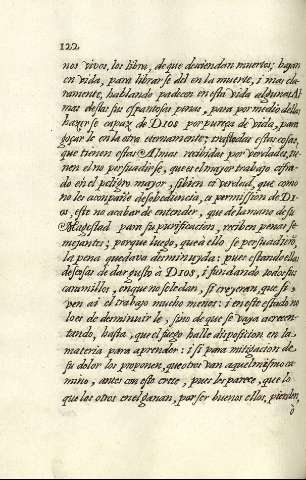 122
nos vivos, los libra, de que desciendan muertos; bajan
en vida, para librarse dèl en la muerte, i mas cla-
ramente, hablando padecen en esta vida algunas Al
mas destas sus espantosas penas, para por medio dellas
hazerse capaz de DIOS por pureça de vida, para
goçar le en la otra eternamente; trasladas estas cosas,
que tienen estas Almas recibidas por verdades, tie-
nen el no persuadirse, que es el mayor trabajo cifra-
do en el peligro mayor, si bien es verdad, que como
no les acompañe desobediencia, a permission de DI-
OS, esto no acabar de entender, que de la mano de su
Magestad para su purificacion, reciben penas se-
mejantes; porque luego, que a ello se persuadirà
la pena quedava deminuyda: pues estando ellas
deseosas de dar gusto à DIOS, i fundando todos sus
caramillos, en que no se le dan, si creyeran, que si
ven ai el trabajo mucho menos: i en este estado no
lo es de deminuirle, sino de que se vaya acreçen-
tando, hasta, que el fuego halle disposicion en la
materia para aprender: i si para mitigacion de
su dolor les proponen, que otros van aquel mismo ca
mino, antes con esto crece, pues les parece, que lo
que los otros en el ganan, por ser buenos ellos, pierden,
ò